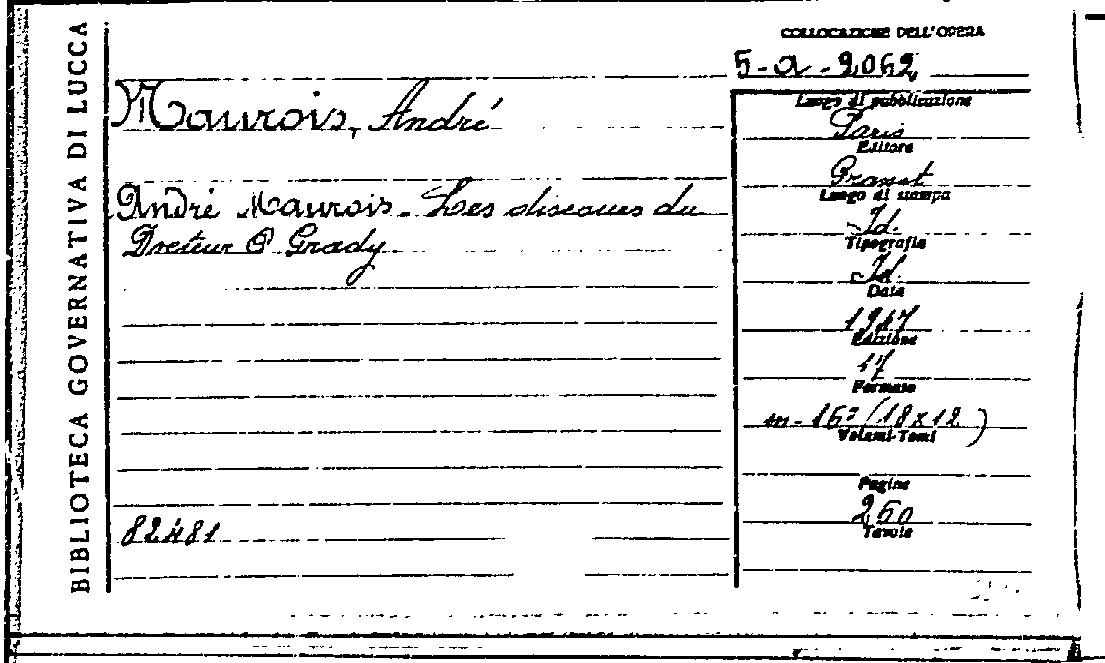 BIBLIOTECA GOVERNATIVA DI LUCCA
COLLOCAZIONE DELL'OPERA
5-a-2062
Maurois, André
André Maurois - Les discours du
Docteur O Grady
82481
Luogo di pubblicazione
Paris
Editore
Grasset
Luogo di stampa
Id.
Tipografia
Id.
Data
Edizione
17
Formato
in-16° (18x12)
Volumi-Tomi
Pagine
260
Tavole